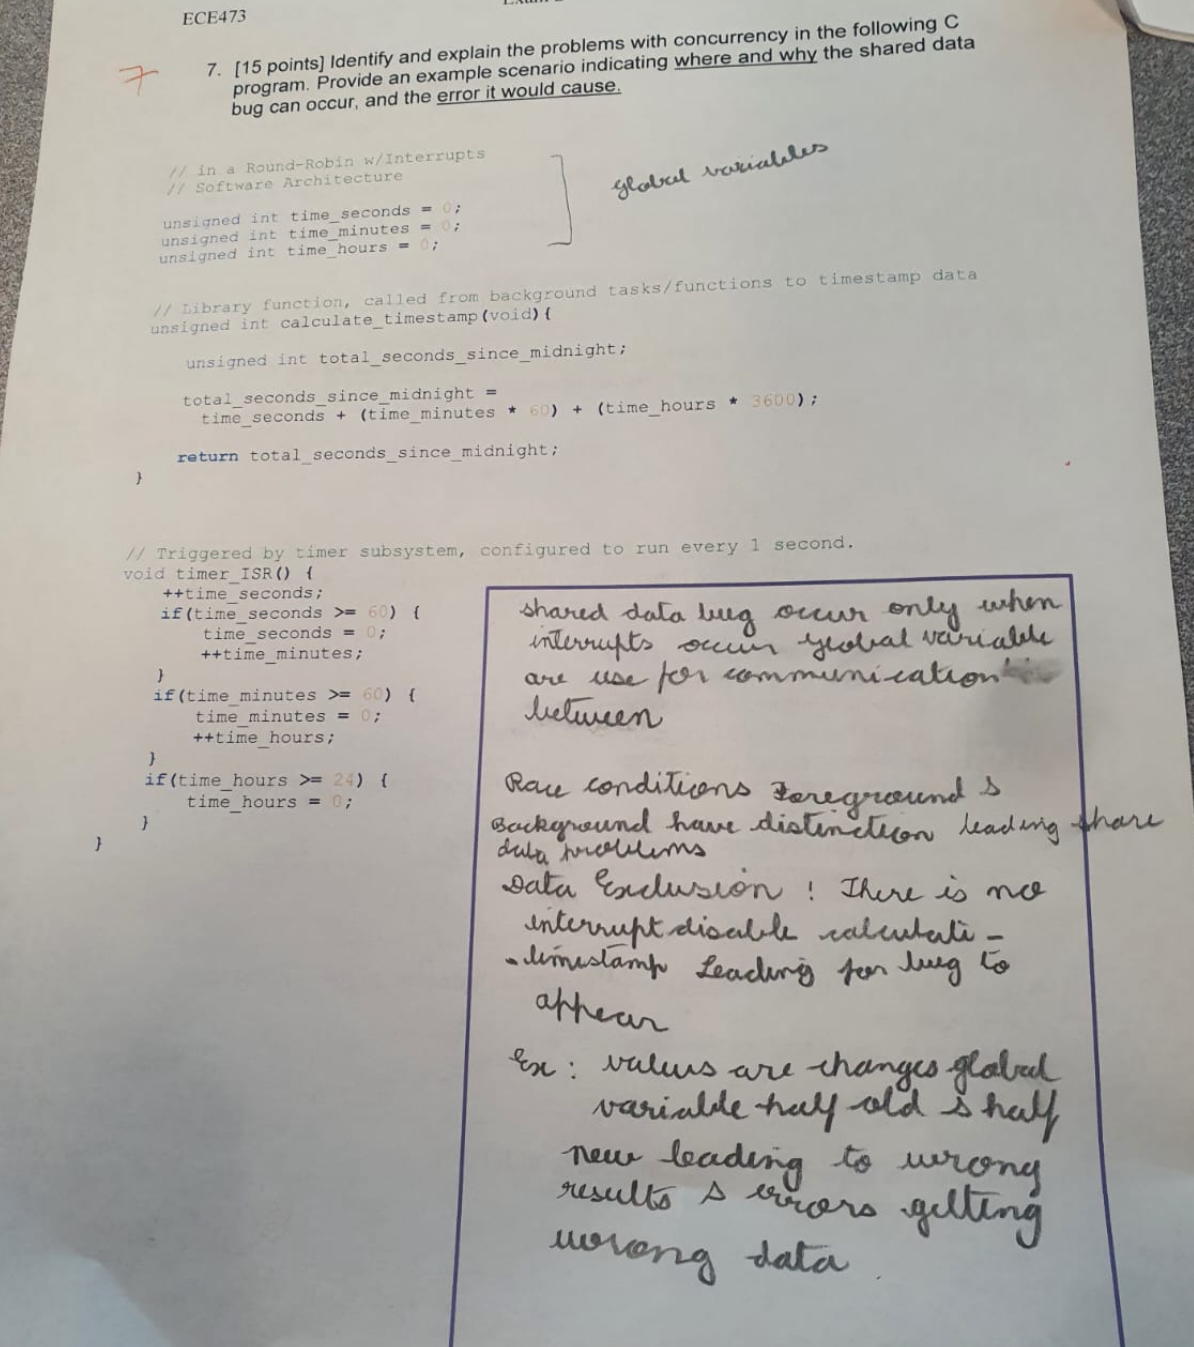 ECE473
7
7. [15 points] Identify and explain the problems with concurrency in the following C
program. Provide an example scenario indicating where and why the shared data
bug can occur, and the error it would cause.
// in a Round-Robin w/Interrupts
// Software Architecture
global variables
unsigned int time_seconds = 0;
unsigned int time_minutes = 0;
unsigned int time_hours = 0;
// Library function, called from background tasks/functions to timestamp data
unsigned int calculate_timestamp(void){
unsigned int total_seconds_since_midnight;
total_seconds_since_midnight =
time_seconds + (time_minutes * 60) + (time_hours * 3600);
return total_seconds_since_midnight;
}
// Triggered by timer subsystem, configured to run every 1 second.
void timer_ISR() {
++time_seconds;
if(time_seconds >= 60) {
time_seconds = 0;
++time_minutes;
}
if(time_minutes >= 60) {
time_minutes = 0;
++time_hours;
}
if(time_hours >= 24) {
time_hours = 0;
}
}
shared data bug occur only when
interrupts occur global variable
are use for communication
between
Race conditions Foreground &
Background have distinction leading share
data problems
Data Exclusion : There is no
interrupt disable calculati -
- timestamp Leading for bug to
appear
Ex : values are changes global
variable half old & half
new leading to wrong
results & errors getting
wrong data